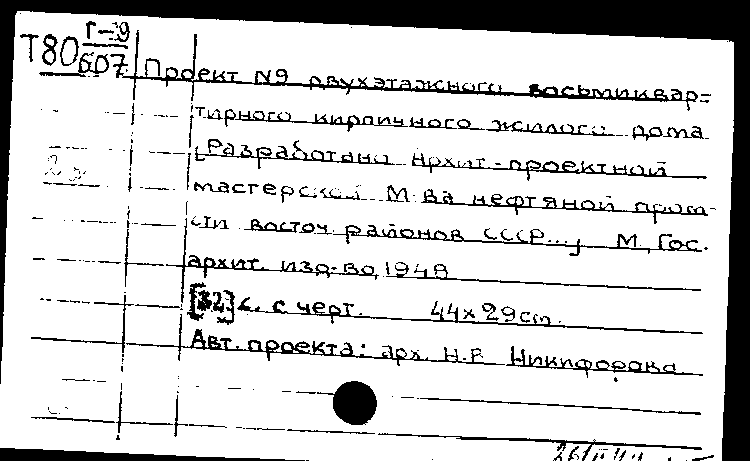 Г-9
Т80 607
Проект N9 двухэтажного восьмиквар=
тирного кирпичного жилого дома
[Разработано Архит.-проектной
мастерской М-ва нефтяной пром-
сти восточ. районов СССР...] М., Гос.
архит. изд-во, 1948
[32] с. с черт. 44х29cm.
Авт. проекта: арх. Н.В. Никифорова